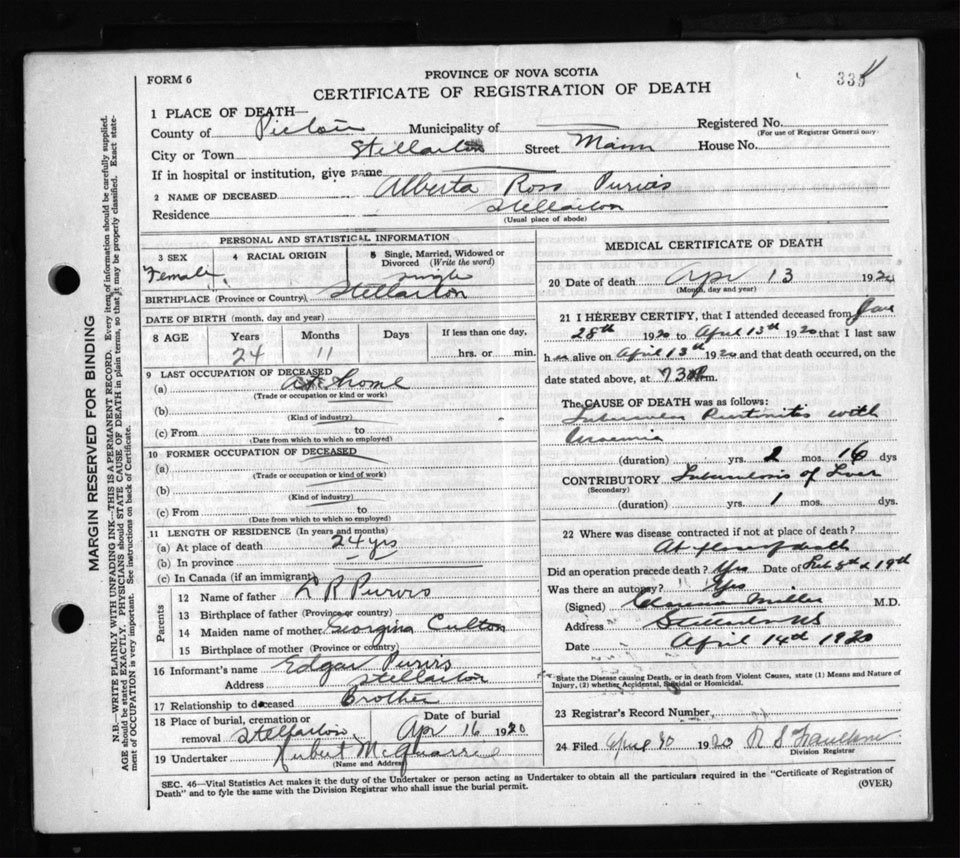 FORM 6
PROVINCE OF NOVA SCOTIA
CERTIFICATE OF REGISTRATION OF DEATH
335
1 PLACE OF DEATH—
County of Pictou Municipality of Registered No.
(For use of Registrar General only)
City or Town Stellarton Street Main House No.
If in hospital or institution, give name
2 NAME OF DECEASED Alberta Ross Purvis
Residence Stellarton
(Usual place of abode)
PERSONAL AND STATISTICAL INFORMATION
3 SEX 4 RACIAL ORIGIN 5 Single, Married, Widowed or Divorced (Write the word)
Female single
BIRTHPLACE (Province or Country) Stellarton
DATE OF BIRTH (month, day and year)
8 AGE Years Months Days If less than one day,
24 11 hrs. or min.
9 LAST OCCUPATION OF DECEASED
(a) At home
(Trade or occupation or kind or work)
(b)
(Kind of industry)
(c) From to
(Date from which to which so employed)
10 FORMER OCCUPATION OF DECEASED
(a)
(Trade or occupation or kind of work)
(b)
(Kind of industry)
(c) From to
(Date from which to which so employed)
11 LENGTH OF RESIDENCE (In years and months)
(a) At place of death 24 yrs
(b) In province
(c) In Canada (if an immigrant)
Parents
12 Name of father R Purvis
13 Birthplace of father (Province or country)
14 Maiden name of mother Georgina Culton
15 Birthplace of mother (Province or country)
16 Informant's name Edgar Purvis
Address Stellarton
17 Relationship to deceased Brother
18 Place of burial, cremation or removal Stellarton Date of burial Apr 16 1920
19 Undertaker McQuarrie
(Name and Address)
MEDICAL CERTIFICATE OF DEATH
20 Date of death Apr 13 1920
(Month, day and year)
21 I HEREBY CERTIFY, that I attended deceased from Jan
28th 1920 to April 13th 1920 that I last saw
h er alive on April 13th 1920 and that death occurred, on the
date stated above, at m.
The CAUSE OF DEATH was as follows:
Tubercular Peritonitis with
(duration) yrs. 2 mos. 16 dys
CONTRIBUTORY Tuberculosis of Liver
(Secondary)
(duration) yrs. 1 mos. dys.
22 Where was disease contracted if not at place of death?
At place of death
Did an operation precede death? Yes Date of Feb 8th & 19th
Was there an autopsy? Yes
(Signed) Clarence Miller M.D.
Address Stellarton NS
Date April 14th 1920
State the Disease causing Death, or in death from Violent Causes, state (1) Means and Nature of
Injury, (2) whether Accidental, Suicidal or Homicidal.
23 Registrar's Record Number
24 Filed April 30 1920 R S
Division Registrar
SEC. 46—Vital Statistics Act makes it the duty of the Undertaker or person acting as Undertaker to obtain all the particulars required in the "Certificate of Registration of
Death" and to fyle the same with the Division Registrar who shall issue the burial permit.
(OVER)
MARGIN RESERVED FOR BINDING
N.B.—WRITE PLAINLY WITH UNFADING INK—THIS IS A PERMANENT RECORD. Every item of information should be carefully supplied.
AGE should be stated EXACTLY. PHYSICIANS should STATE CAUSE OF DEATH in plain terms, so that it may be properly classified. Exact state-
ment of OCCUPATION is very important. See instructions on back of Certificate.